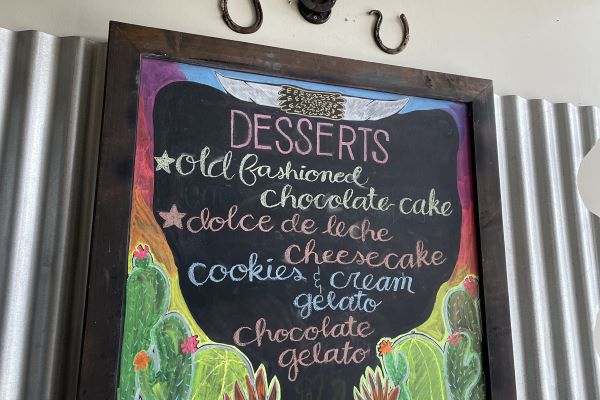 DESSERTS
old fashioned
chocolate cake
dolce de leche
cheesecake
cookies & cream
gelato
chocolate
gelato